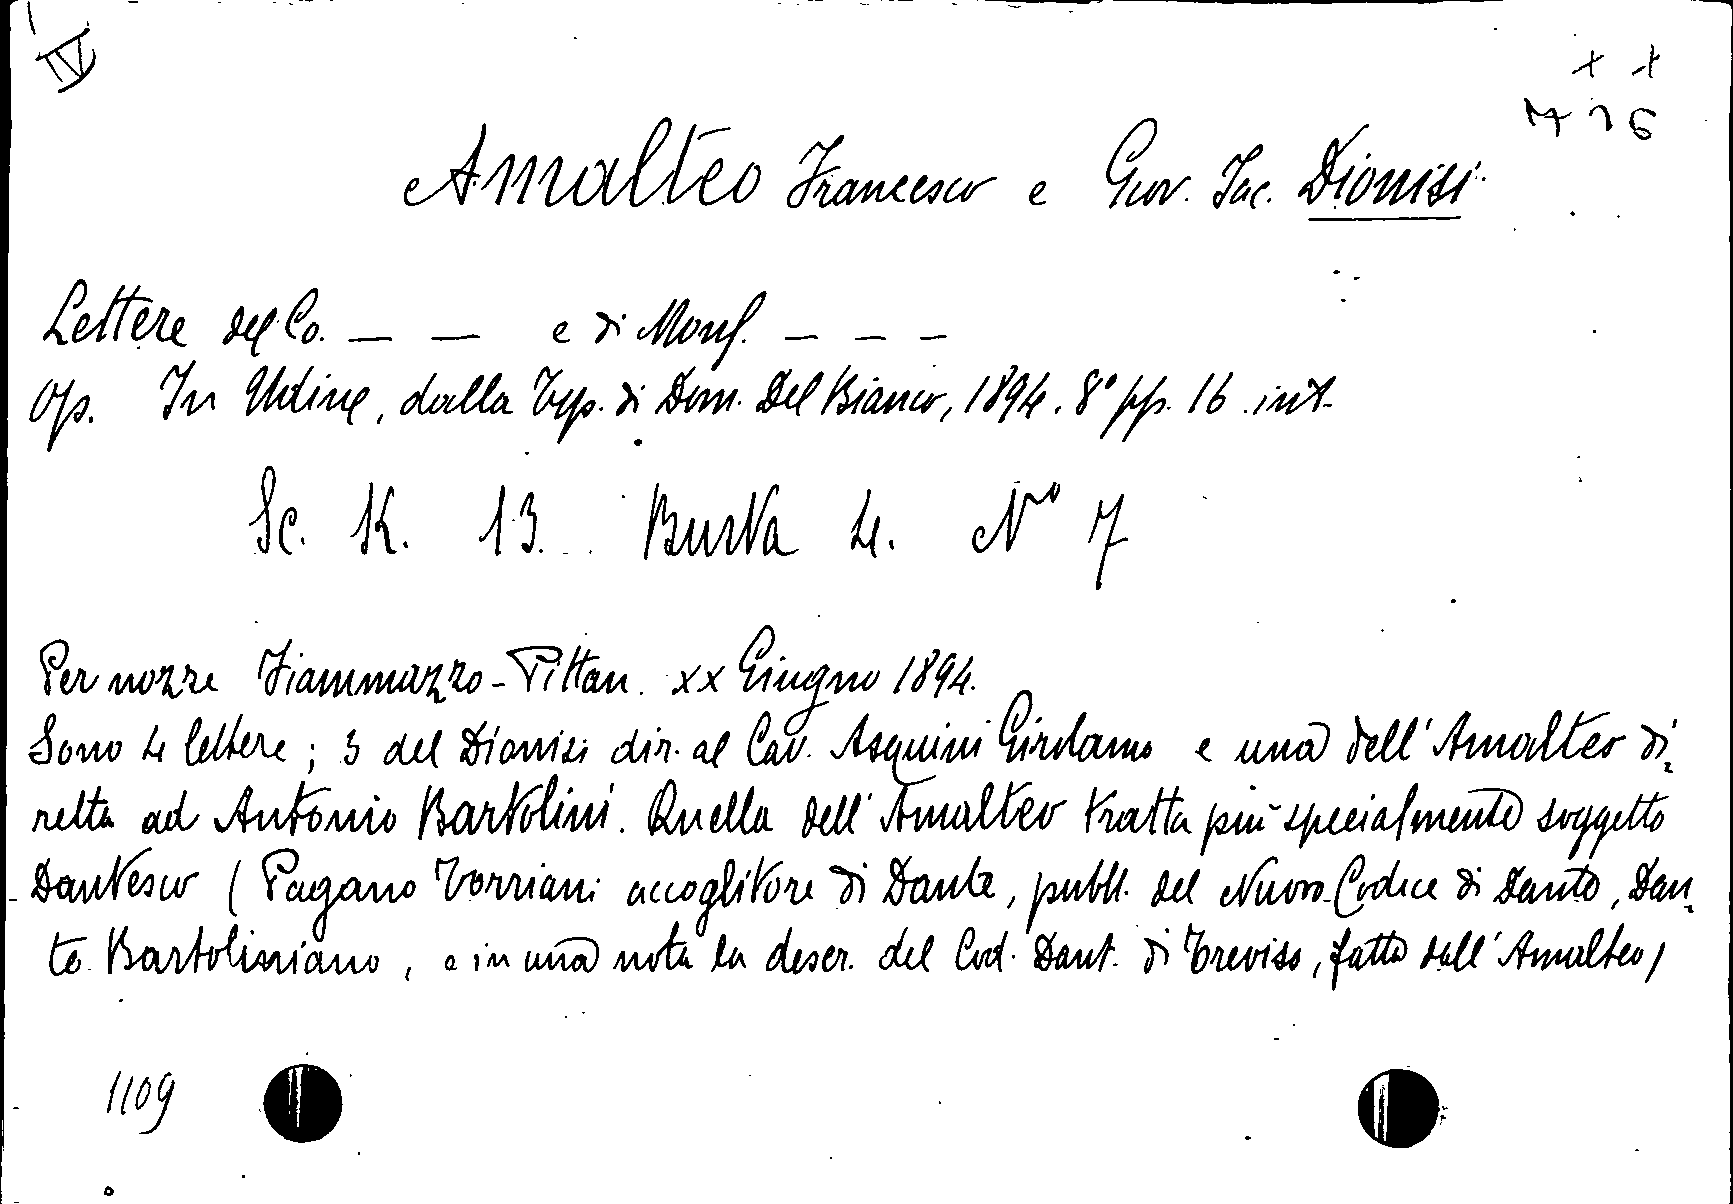 IV
x x
7 2 6
Amalteo Francesco e Giov. Jac. Dionisi
Lettere del Co. — — e di Mons. — — —
Op. In Udine, dalla Typ. di Dom. Del Bianco, 1894. 8° pp. 16 int.
Sc. K. 13. Busta 4. N° 7
Per nozze Fiammazzo-Pittan. xx Giugno 1894.
Sono 4 lettere; 3 del Dionisi dir. al Cav. Asquini Girolamo e una dell'Amalteo di-
retta ad Antonio Bartolini. Quella dell'Amalteo tratta più specialmente soggetto
Dantesco (Pagano Torriani accoglitore di Dante, pubbl. del Nuovo Codice di Dante, Dan-
te Bartoliniano, e in una nota la descr. del Cod. Dant. di Treviso, fatta dall'Amalteo)
1109